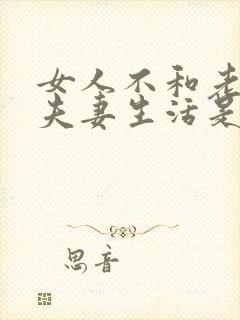 女人不和老
夫妻生活是
思音